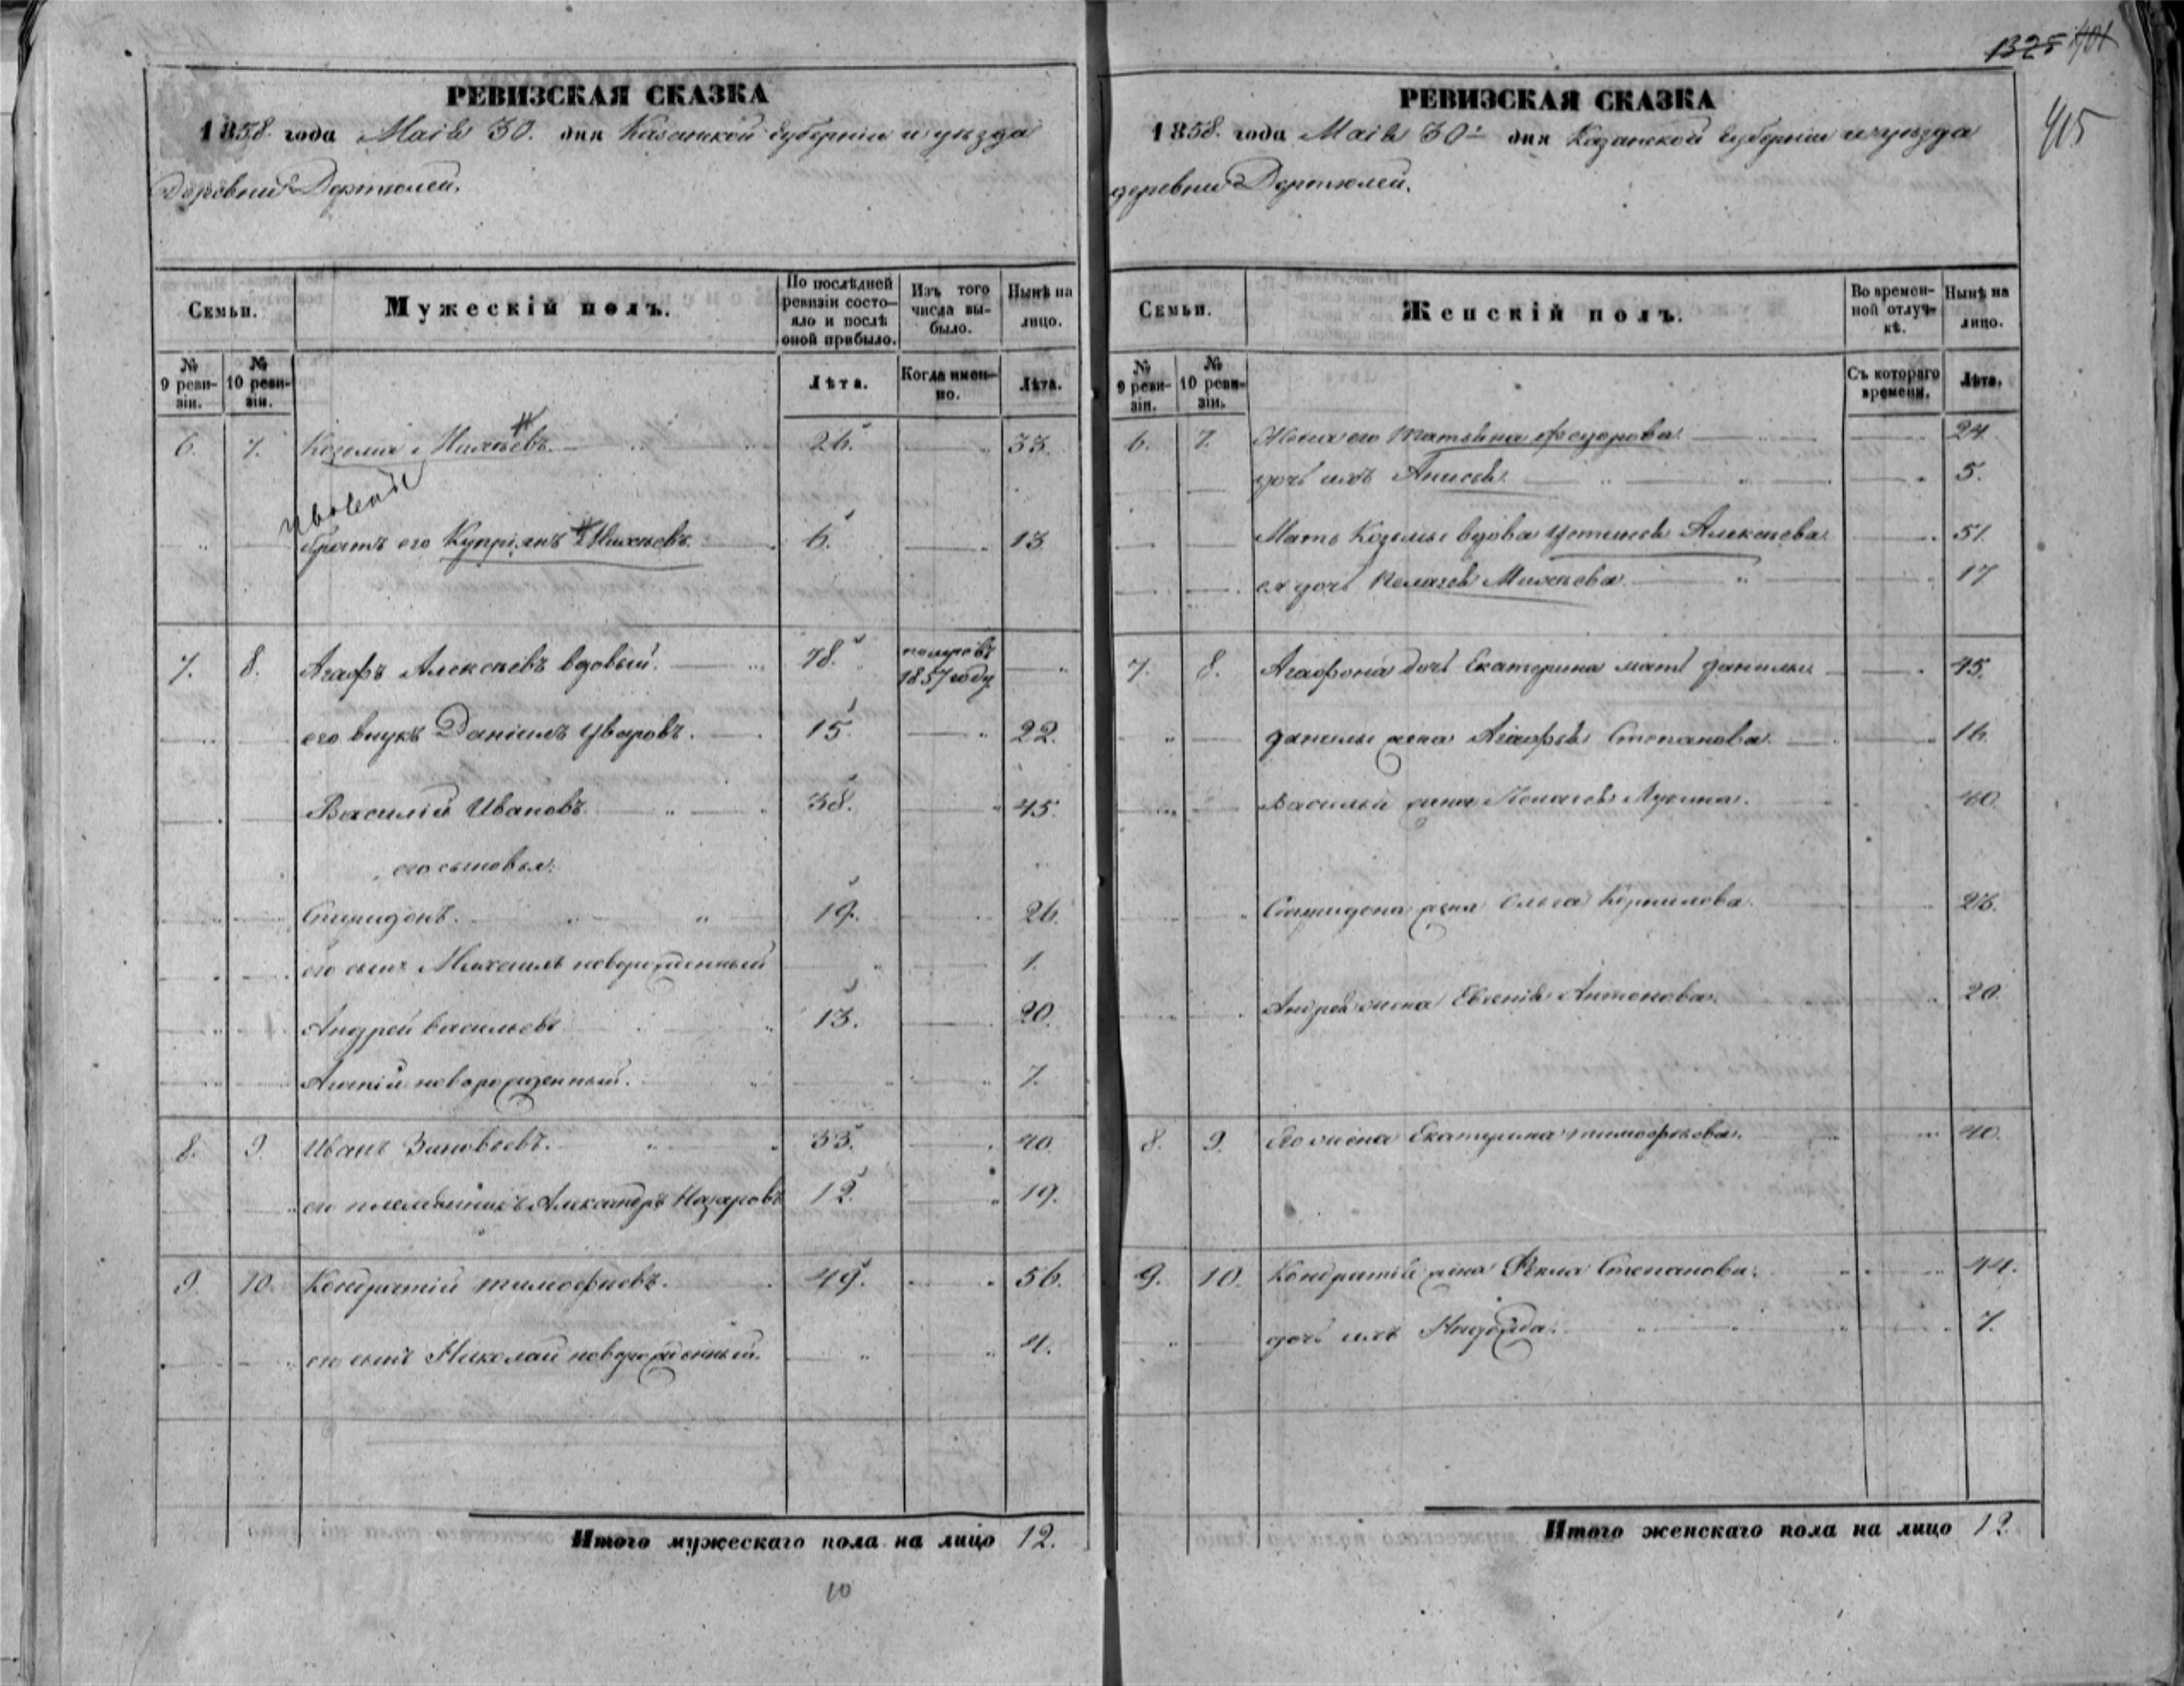 1325
415
РЕВИЗСКАЯ СКАЗКА
1858. года Маія 30. дня Казанской губерніи и уезда
деревни Дертюлей.
Семьи.
Мужескій полъ.
По послѣдней ревизіи состо-
яло и послѣ
оной прибыло.
Изъ того
числа вы-
было.
Нынѣ на
лицо.
№
9 реви-
зіи.
№
10 реви-
зіи.
Лѣта.
Когда имен-
но.
Лѣта.
6. 7. Козьма Михѣевъ. 26. 33.
братъ его Купріянъ Михѣевъ. 6. 13
7. 8. Агафъ Алексѣевъ вдовый. 78. померъ въ
1857 году
его внукъ Даніилъ Уваровъ. 15. 22.
Василій Ивановъ. 38. 45.
его сыновья:
Спиридонъ. 19. 26.
его сынъ Михаилъ новорожденный 1.
Андрей Васильевъ 13. 20.
новорожденный. 7.
8. 9. Иванъ Зиновьевъ. 33. 40.
его племянникъ Александръ Назаровъ 12. 19.
9. 10. Кондратій Тимофѣевъ. 49. 56.
его сынъ Николай новорожденный. 4.
Итого мужескаго пола на лицо 12.
10
РЕВИЗСКАЯ СКАЗКА
1858. года Маія 30. дня Казанской губерніи и уѣзда
деревни Дертюлей.
Семьи.
Женскій полъ.
Во времен-
ной отлуч-
кѣ.
Нынѣ на
лицо.
№
9 реви-
зіи.
№
10 реви-
зіи.
Съ котораго
времени.
Лѣта.
6. 7. Жена его Татьяна Федорова 24.
дочь ихъ Анисья. 5.
Мать Козьмы вдова Устинья Алексѣева. 51.
ея дочь Пелагея Михѣева. 17
7. 8. Агафона дочь Екатерина мать Данилы 45.
Данилы жена Агафья Степанова. 16.
Василья жена Пелагея Лукина. 40.
Спиридона жена Ольга Корнилова. 23.
Андрея жена Евгенія Антонова. 20.
8. 9. Его жена Екатерина Тимофѣева. 40.
9. 10. Кондратія жена Фекла Степанова. 44.
дочь ихъ Надежда. 7.
Итого женскаго пола на лицо 12.